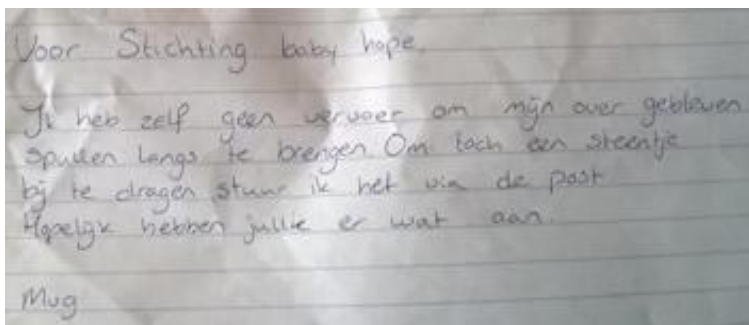 Voor Stichting baby hope.
Ik heb zelf geen vervoer om mijn over gebleven
spullen langs te brengen Om toch een steentje
bij te dragen stuur ik het via de post
Hopelijk hebben jullie er wat aan.
Mvg